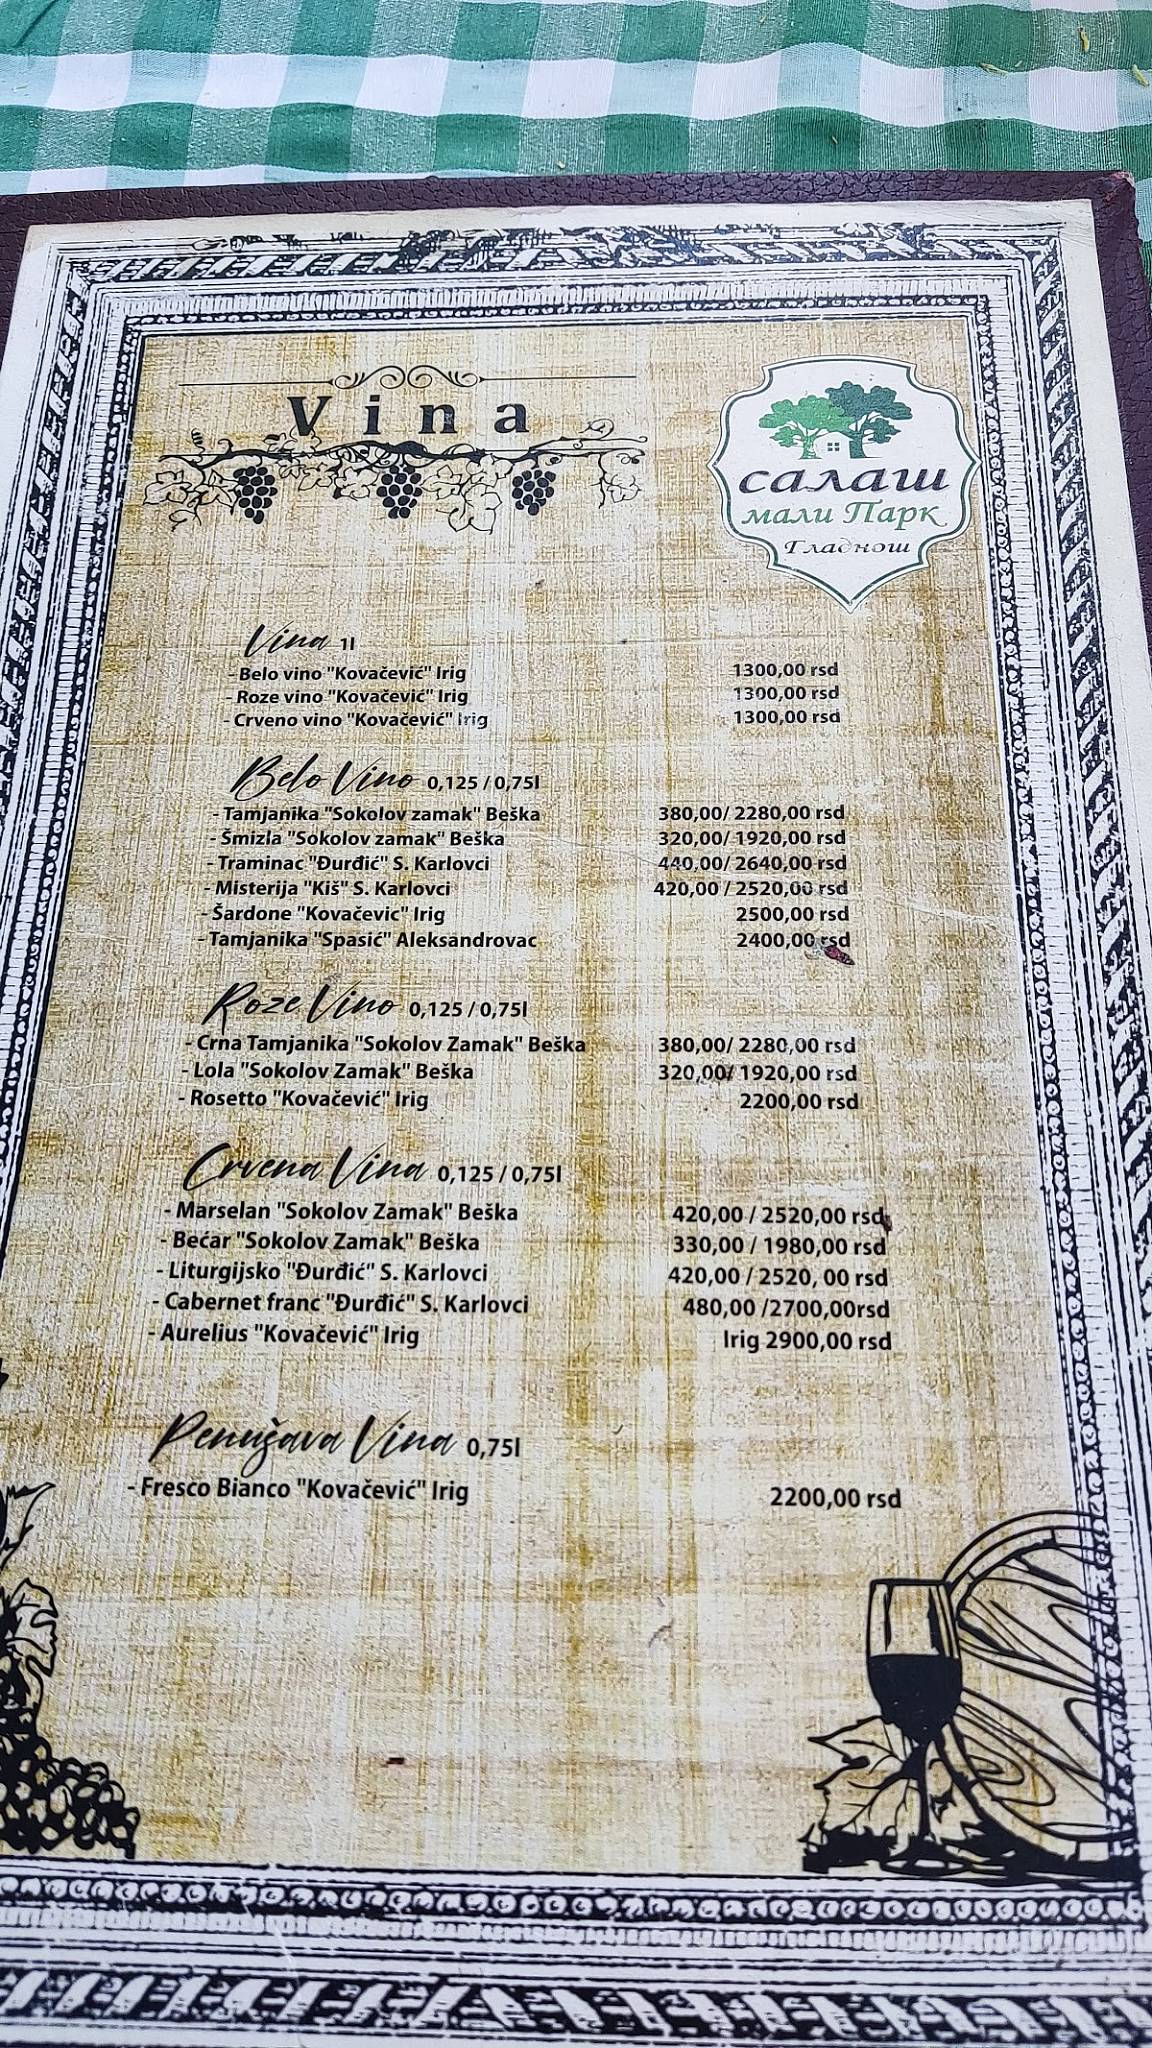 Vina
салаш
мали Парк
Гладнош
Vina 1l
- Belo vino "Kovačević" Irig 1300,00 rsd
- Roze vino "Kovačević" Irig 1300,00 rsd
- Crveno vino "Kovačević" Irig 1300,00 rsd
Belo Vino 0,125 / 0,75l
- Tamjanika "Sokolov zamak" Beška 380,00/ 2280,00 rsd
- Šmizla "Sokolov zamak" Beška 320,00/ 1920,00 rsd
- Traminac "Đurđić" S. Karlovci 440,00/ 2640,00 rsd
- Misterija "Kiš" S. Karlovci 420,00 / 2520,00 rsd
- Šardone "Kovačevic" Irig 2500,00 rsd
- Tamjanika "Spasić" Aleksandrovac 2400,00 rsd
Roze Vino 0,125 / 0,75l
- Crna Tamjanika "Sokolov Zamak" Beška 380,00/ 2280,00 rsd
- Lola "Sokolov Zamak" Beška 320,00/ 1920,00 rsd
- Rosetto "Kovačević" Irig 2200,00 rsd
Crvena Vina 0,125 / 0,75l
- Marselan "Sokolov Zamak" Beška 420,00 / 2520,00 rsd
- Bećar "Sokolov Zamak" Beška 330,00 / 1980,00 rsd
- Liturgijsko "Đurđić" S. Karlovci 420,00 / 2520, 00 rsd
- Cabernet franc "Đurđić" S. Karlovci 480,00 /2700,00rsd
- Aurelius "Kovačević" Irig Irig 2900,00 rsd
Penušava Vina 0,75l
- Fresco Bianco "Kovačević" Irig 2200,00 rsd